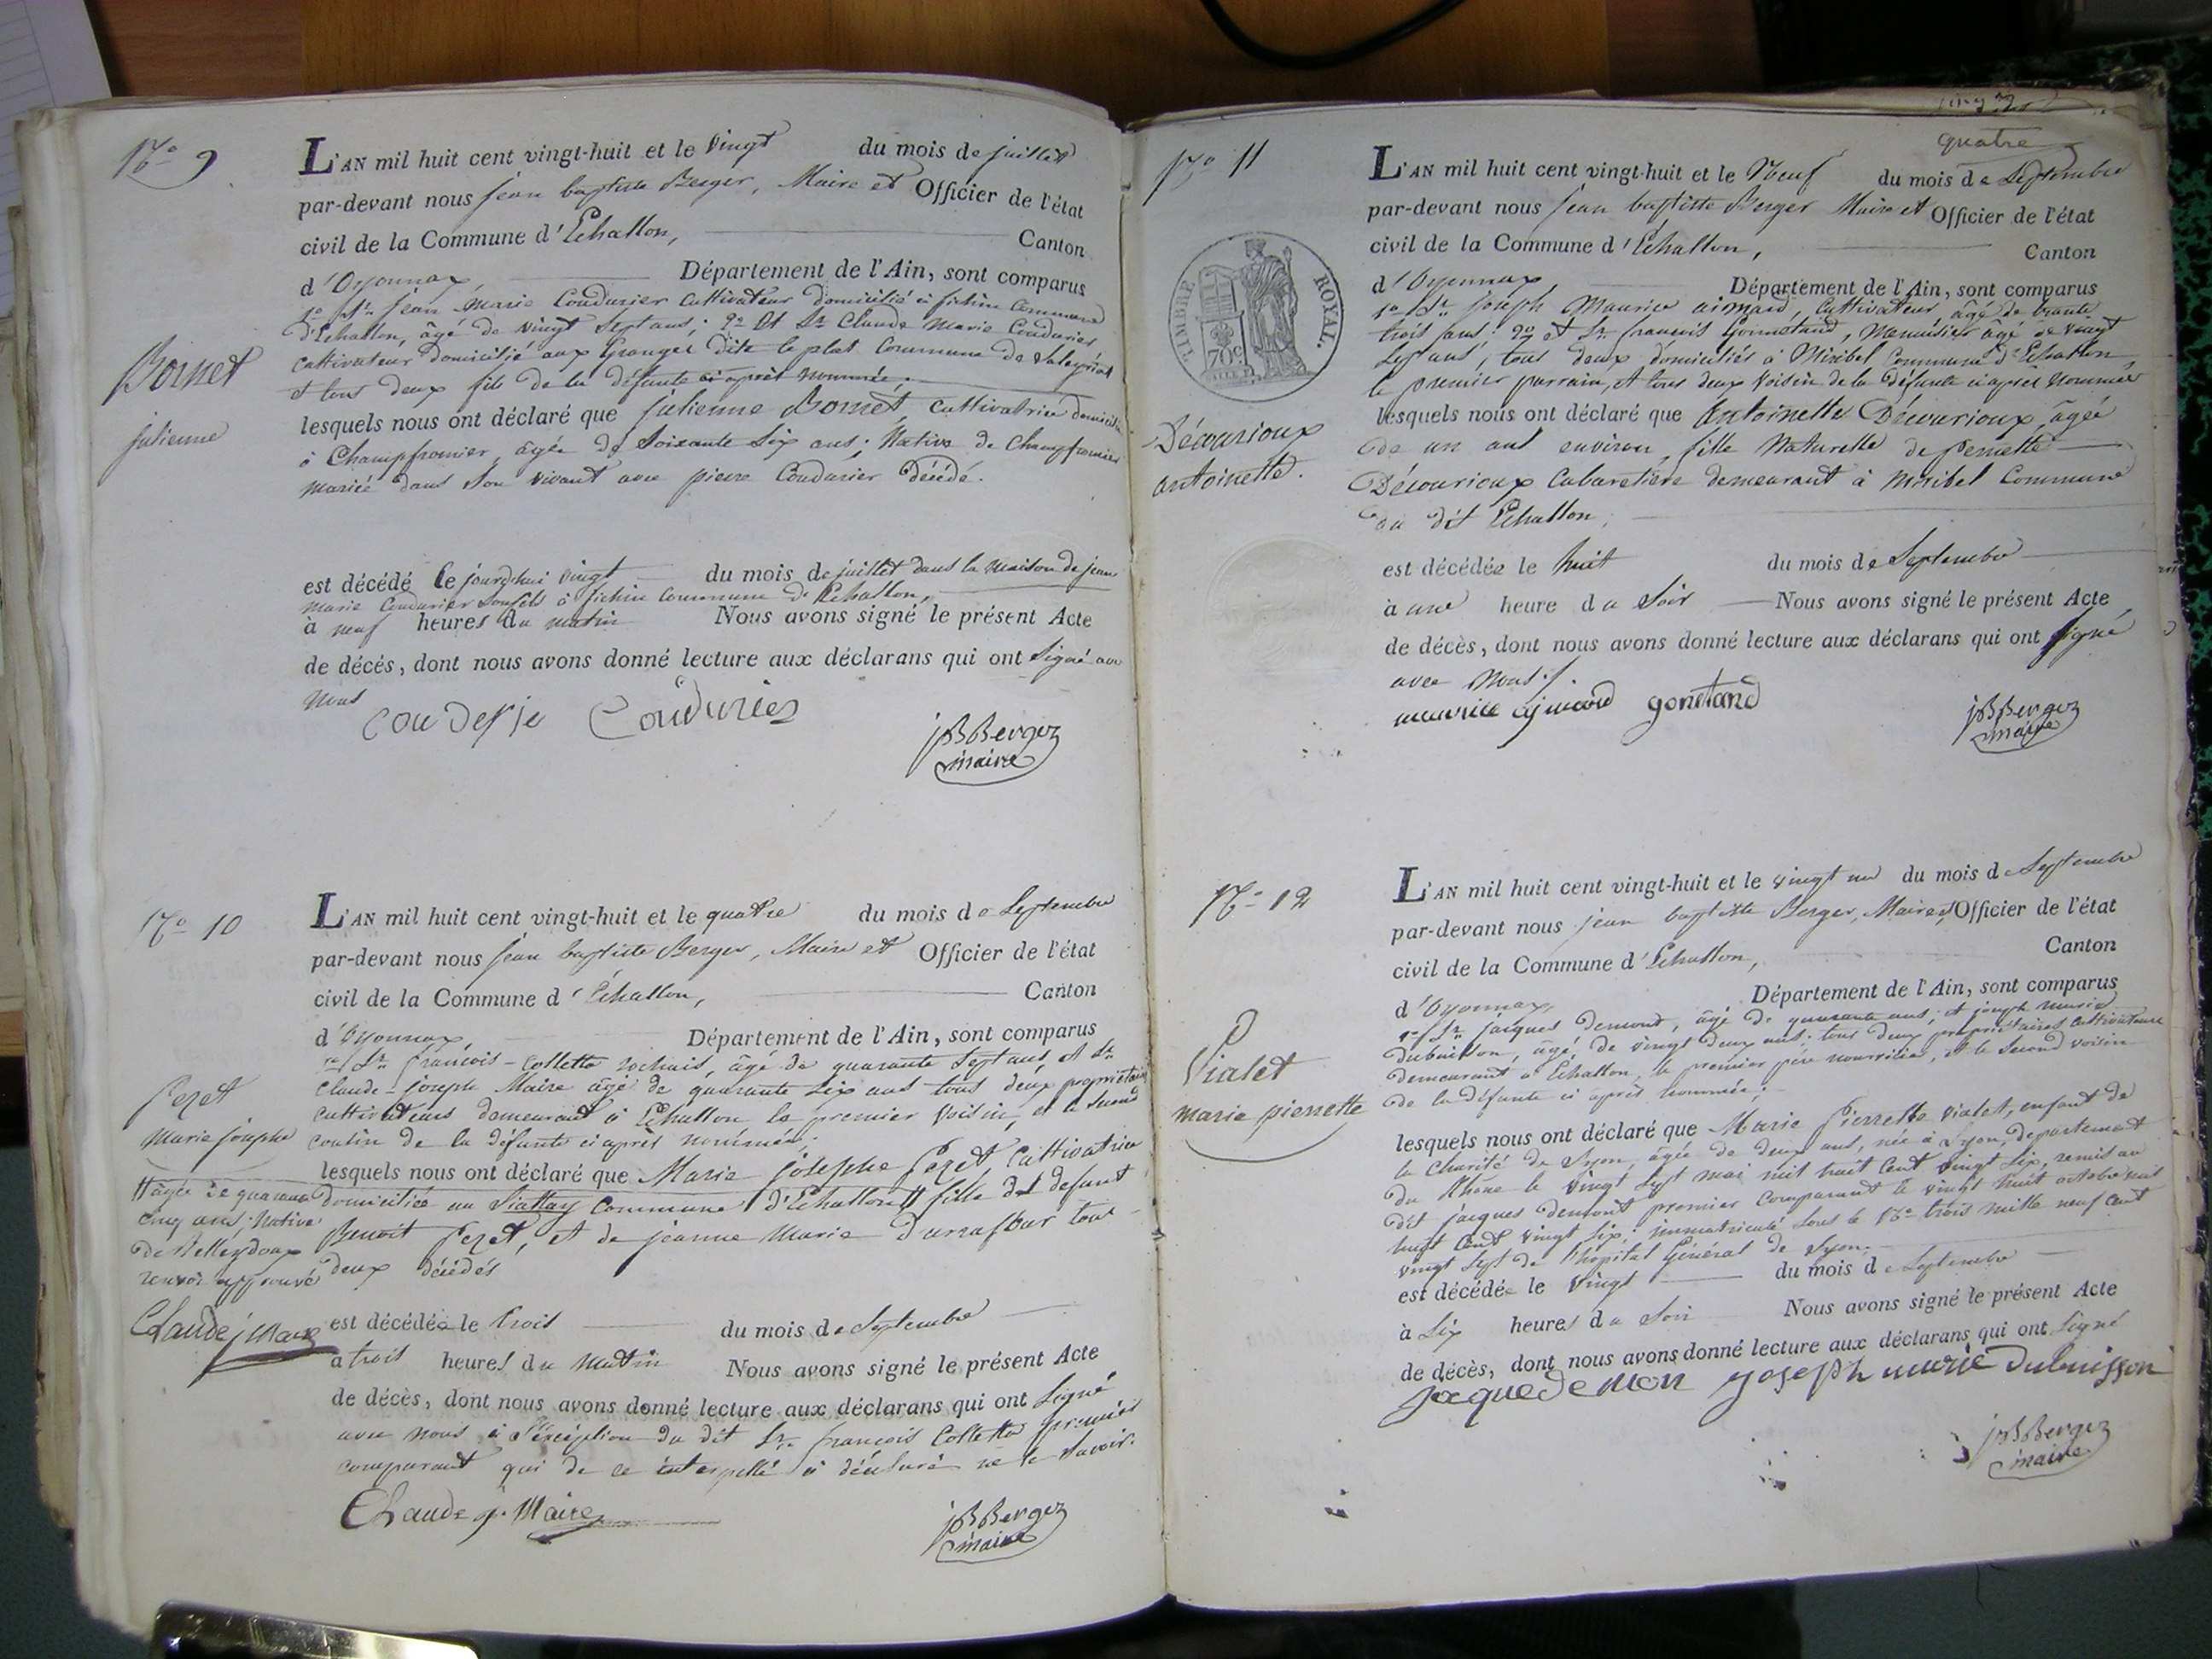 N.o 9
L'AN mil huit cent vingt-huit et le vingt du mois de juillet
par-devant nous jean baptiste Berger, Maire et Officier de l'état
civil de la Commune d'Echallon, Canton
d'Oyonnax, Département de l'Ain, sont comparus
1o Sr. jean Marie Coudurier Cultivateur domicilié à fichin Commune
d'Echallon, âgé de vingt Sept ans; 2o Et Sr. Claude Marie Coudurier
Cultivateur domicilié aux Granges dite le plat Commune de
et tous deux fils de la défunte ci après nommée;
Bornet
julienne
lesquels nous ont déclaré que julienne Bornet, Cultivatrice domiciliée
à Champfromier, âgée de Soixante Six ans; Native de Champfromier
mariée dans Son vivant avec pierre Coudurier décédé.
est décédé le jourdhui vingt du mois de juillet dans la maison de jean
marie Coudurier Son fils à fichin Commune d'Echallon,
à neuf heures du matin Nous avons signé le présent Acte
de décés, dont nous avons donné lecture aux déclarans qui ont Signé avec
nous
Coudurier
jBBerger
maire
N.o 10
L'AN mil huit cent vingt-huit et le quatre du mois de Septembre
par-devant nous jean baptiste Berger, Maire et Officier de l'état
civil de la Commune d'Echallon, Canton
d'Oyonnax, Département de l'Ain, sont comparus
1o Sr. françois-Collette rochais, âgé de quarante Sept ans, et Sr.
Claude-joseph Maire âgé de quarante Six ans tous deux propriétaires
Cultivateurs demeurant à Echallon le premier voisin, et le Second
cousin de la défunte ci après nommée;
Peret
Marie josephe
lesquels nous ont déclaré que Marie josephe Peret, Cultivatrice
domiciliée au Siattay Commune d'Echallon # fille de défunt
Benoit Peret, et de jeanne Marie tous
deux décédés
# âgée de quarante
cinq ans; Native
de Belleydoux
renvoi approuvé
Claude j Maire
est décédée le trois du mois de Septembre
à trois heures du Matin Nous avons signé le présent Acte
de décès, dont nous avons donné lecture aux déclarans qui ont Signé
avec nous à l'éxception du dit Sr. françois Collette premier
comparant qui de ce interpellé a déclaré ne le Savoir.
Claude j. Maire
jBBerger
maire
quatre
N.o 11
L'AN mil huit cent vingt-huit et le Neuf du mois de Septembre
par-devant nous jean baptiste Berger Maire et Officier de l'état
civil de la Commune d'Echallon, Canton
d'Oyonnax, Département de l'Ain, sont comparus
TIMBRE ROYAL.
70c.
1o Sr. joseph Maurice aimard, Cultivateur, âgé de trente
trois ans; 2o et Sr. françois Gonnetand, Menuisier âgé de vingt
Sept ans, tous deux domiciliés à Miribel Commune d'Echallon,
le premier parrain, et tous deux voisin de la défunte ci après nommée
Décourioux
antoinette.
lesquels nous ont déclaré que Antoinette Décourioux, âgée
de un ans environ, fille Naturelle de Pernette
Décourioux Cabaretière demeurant à Miribel Commune
du dit Echallon;
est décédée le huit du mois de Septembre
à une heure du Soir Nous avons signé le présent Acte
de décès, dont nous avons donné lecture aux déclarans qui ont Signé
avec Nous./.
maurice aymard gonetand
jBBerger
maire
N.o 12
L'AN mil huit cent vingt-huit et le vingt un du mois de Septembre
par-devant nous jean baptiste Berger, Maire et Officier de l'état
civil de la Commune d'Echallon, Canton
d'Oyonnax, Département de l'Ain, sont comparus
1o Sr. jacques Demont, âgé de quarante ans; et joseph Marie
Dubuisson, âgé de vingt deux ans; tous deux propriétaires Cultivateurs
demeurant à Echallon, le premier père nourricier, et le Second voisin
de la défunte ci après nommée;
Vialet
marie pierrette
lesquels nous ont déclaré que Marie Pierrette Vialet, enfant de
la Charité de Lyon, âgée de deux ans, née à Lyon, département
du Rhône le vingt Sept mai mil huit Cent vingt Six, remis au
dit jacques Demont premier Comparant le vingt huit octobre mil
huit Cent vingt Six; immatriculé Sous le No trois mille neuf Cent
vingt Sept de l'hôpital Général de Lyon.
est décédée le vingt du mois de Septembre
à Six heures du Soir Nous avons signé le présent Acte
de décès, dont nous avons donné lecture aux déclarans qui ont Signé
jaque demon joseph marie Dubuisson
jBBerger
maire